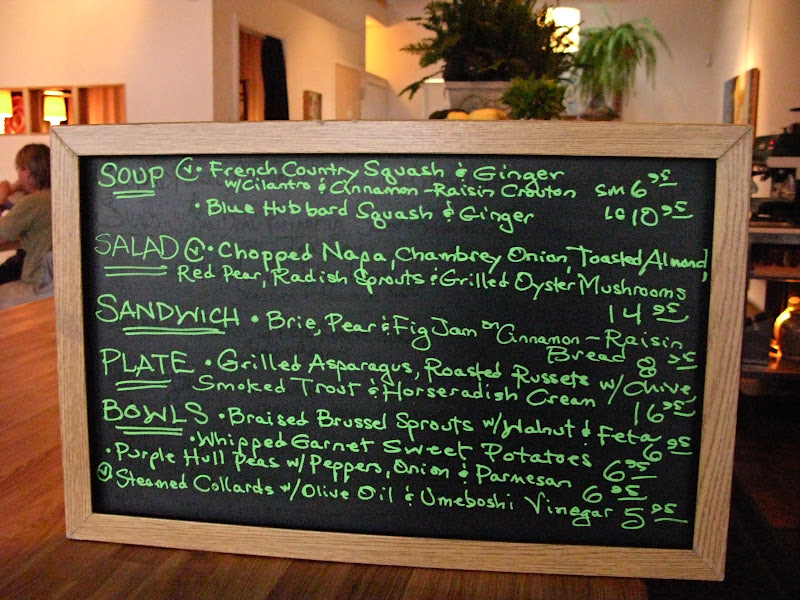 SOUP (V) • French Country Squash & Ginger
w/Cilantro & Cinnamon-Raisin Crouton SM 6 95
• Blue Hubbard Squash & Ginger LG 10 95
SALAD (V) • Chopped Napa, Chambrey Onion, Toasted Almond,
Red Pear, Radish Sprouts & Grilled Oyster Mushrooms
14 95
SANDWICH • Brie, Pear & Fig Jam on Cinnamon-Raisin
Bread 8 95
PLATE • Grilled Asparagus, Roasted Russets w/Chive,
Smoked Trout & Horseradish Cream 16 95
BOWLS • Braised Brussel Sprouts w/Walnut & Feta 6 95
• Whipped Garnet Sweet Potatoes 6 95
• Purple Hull Peas w/Peppers, Onion & Parmesan 6 95
(V) Steamed Collards w/Olive Oil & Umeboshi Vinegar 5 95